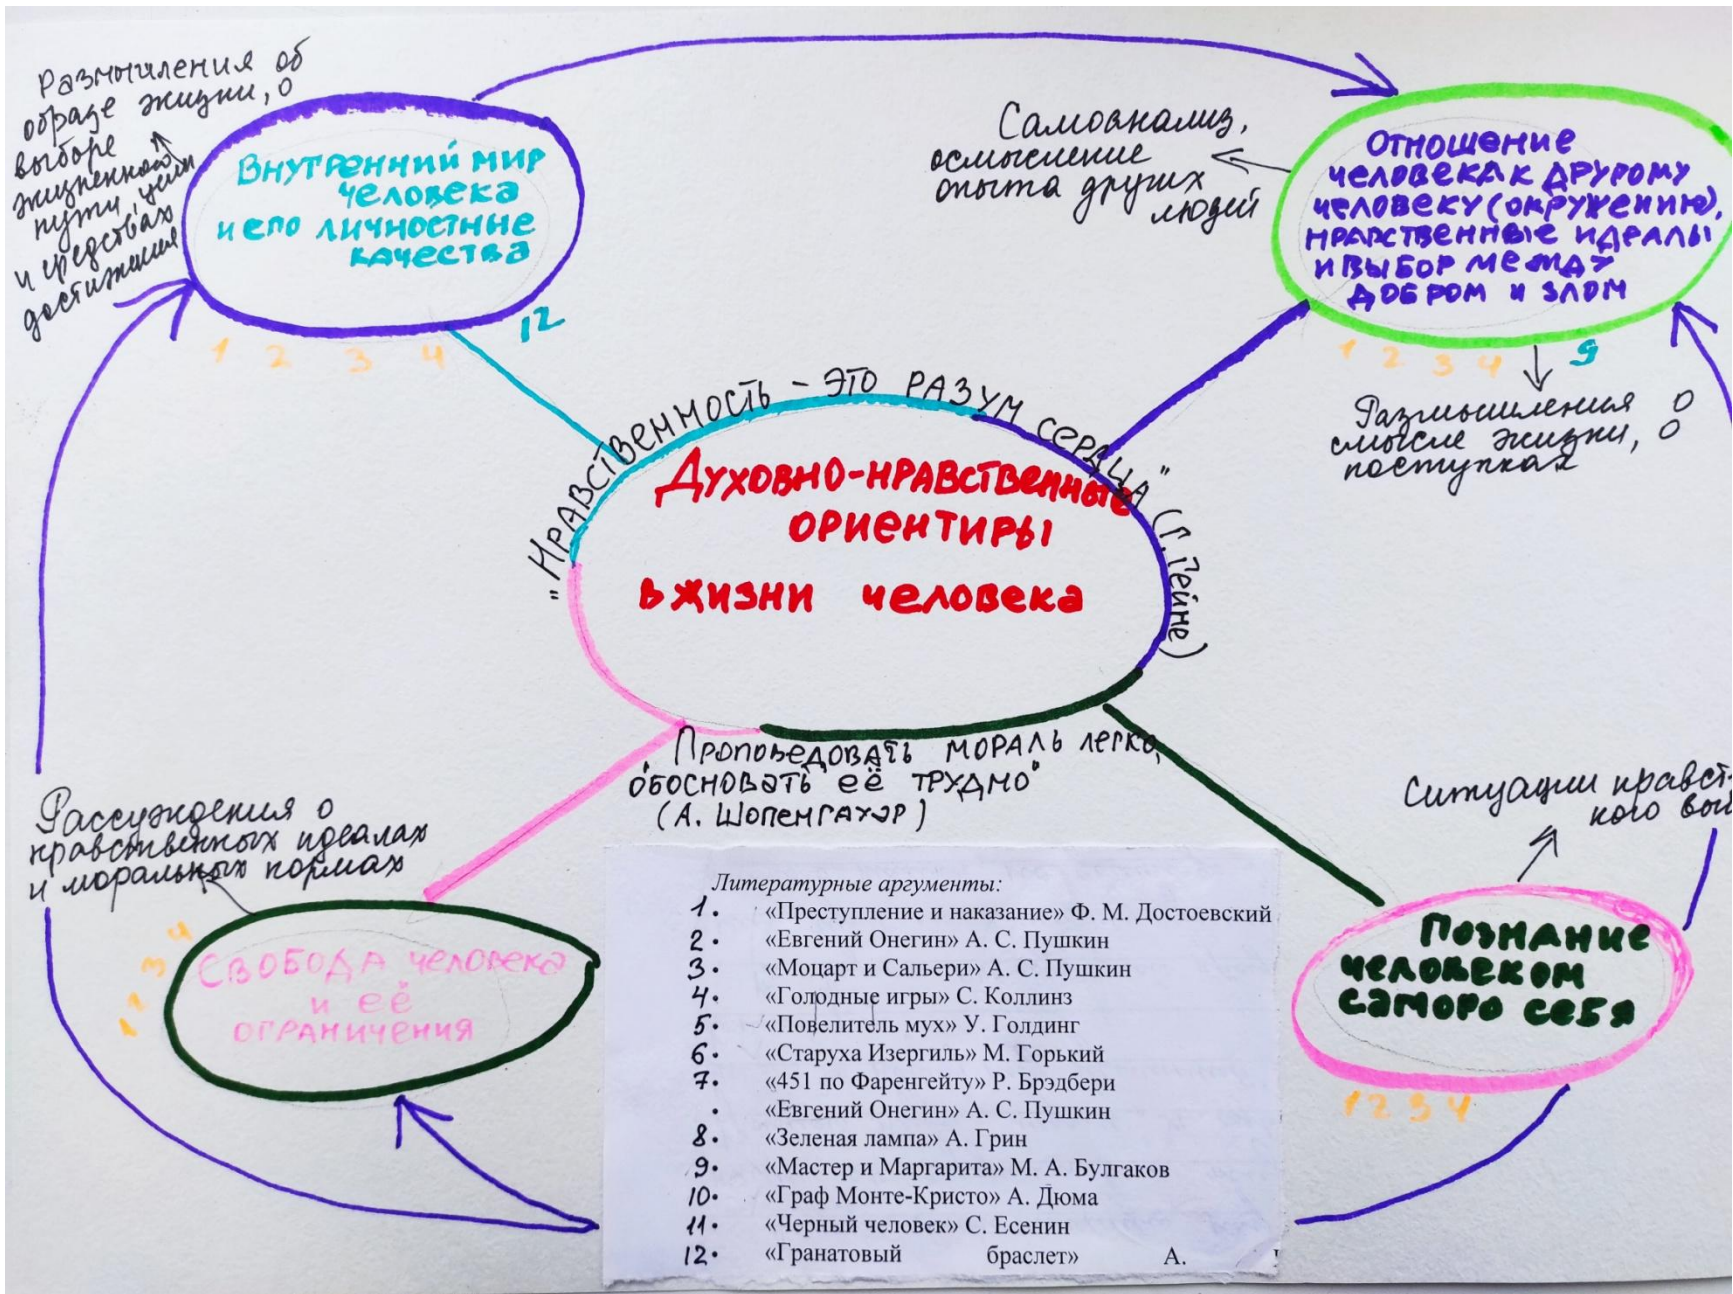 Размышления об
образе жизни, о
выборе
жизненного
пути, цели
и средствах
достижения
Внутренний мир
человека
и его личностные
качества
1 2 3 4 12
Самоанализ,
осмысление
опыта других
людей
Отношение
человека к другому
человеку (окружению),
нравственные идеалы
и выбор между
добром и злом
1 2 3 4 9
Размышления о
смысле жизни, о
поступках
"Нравственность - это разум сердца" (Г. Гейне)
Духовно-нравственные
ориентиры
в жизни человека
"Проповедовать мораль легко,
обосновать её трудно"
(А. Шопенгауэр)
Рассуждения о
нравственных идеалах
и моральных нормах
1 2 3 4
Свобода человека
и её
ограничения
Ситуации нравст-
кого выб
Познание
человеком
самого себя
1 2 3 4
Литературные аргументы:
1. «Преступление и наказание» Ф. М. Достоевский
2. «Евгений Онегин» А. С. Пушкин
3. «Моцарт и Сальери» А. С. Пушкин
4. «Голодные игры» С. Коллинз
5. «Повелитель мух» У. Голдинг
6. «Старуха Изергиль» М. Горький
7. «451 по Фаренгейту» Р. Брэдбери
• «Евгений Онегин» А. С. Пушкин
8. «Зеленая лампа» А. Грин
9. «Мастер и Маргарита» М. А. Булгаков
10. «Граф Монте-Кристо» А. Дюма
11. «Черный человек» С. Есенин
12. «Гранатовый браслет» А.